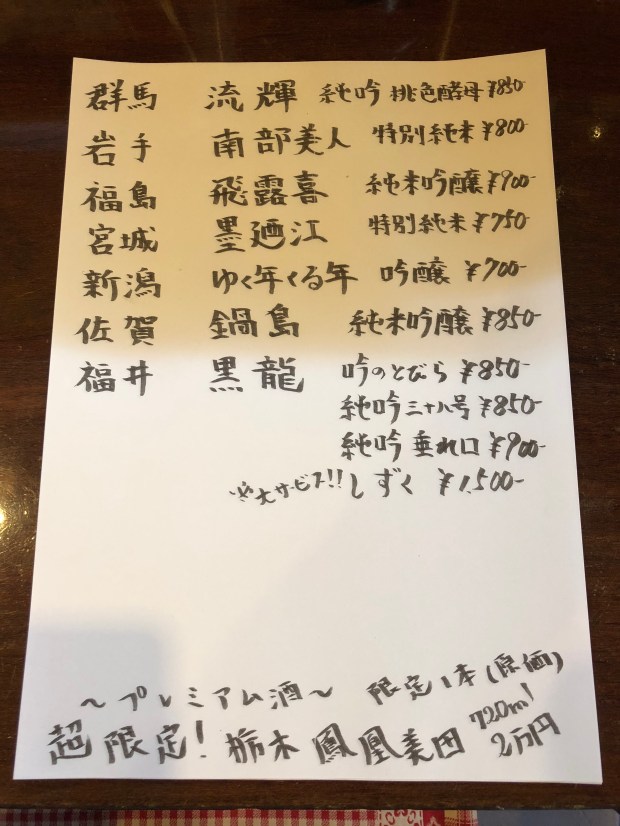 群馬 流輝 純吟 桃色酵母 ¥850-
岩手 南部美人 特別純米 ¥800-
福島 飛露喜 純米吟醸 ¥900-
宮城 墨廼江 特別純米 ¥750-
新潟 ゆく年くる年 吟醸 ¥700-
佐賀 鍋島 純米吟醸 ¥850-
福井 黒龍 吟のとびら ¥850-
純吟 三十八号 ¥850-
純吟 垂れ口 ¥900-
大サービス!! しずく ¥1,500-
〜プレミアム酒〜 限定1本(原価)
超限定! 栃木 鳳凰美田 720ml 2万円